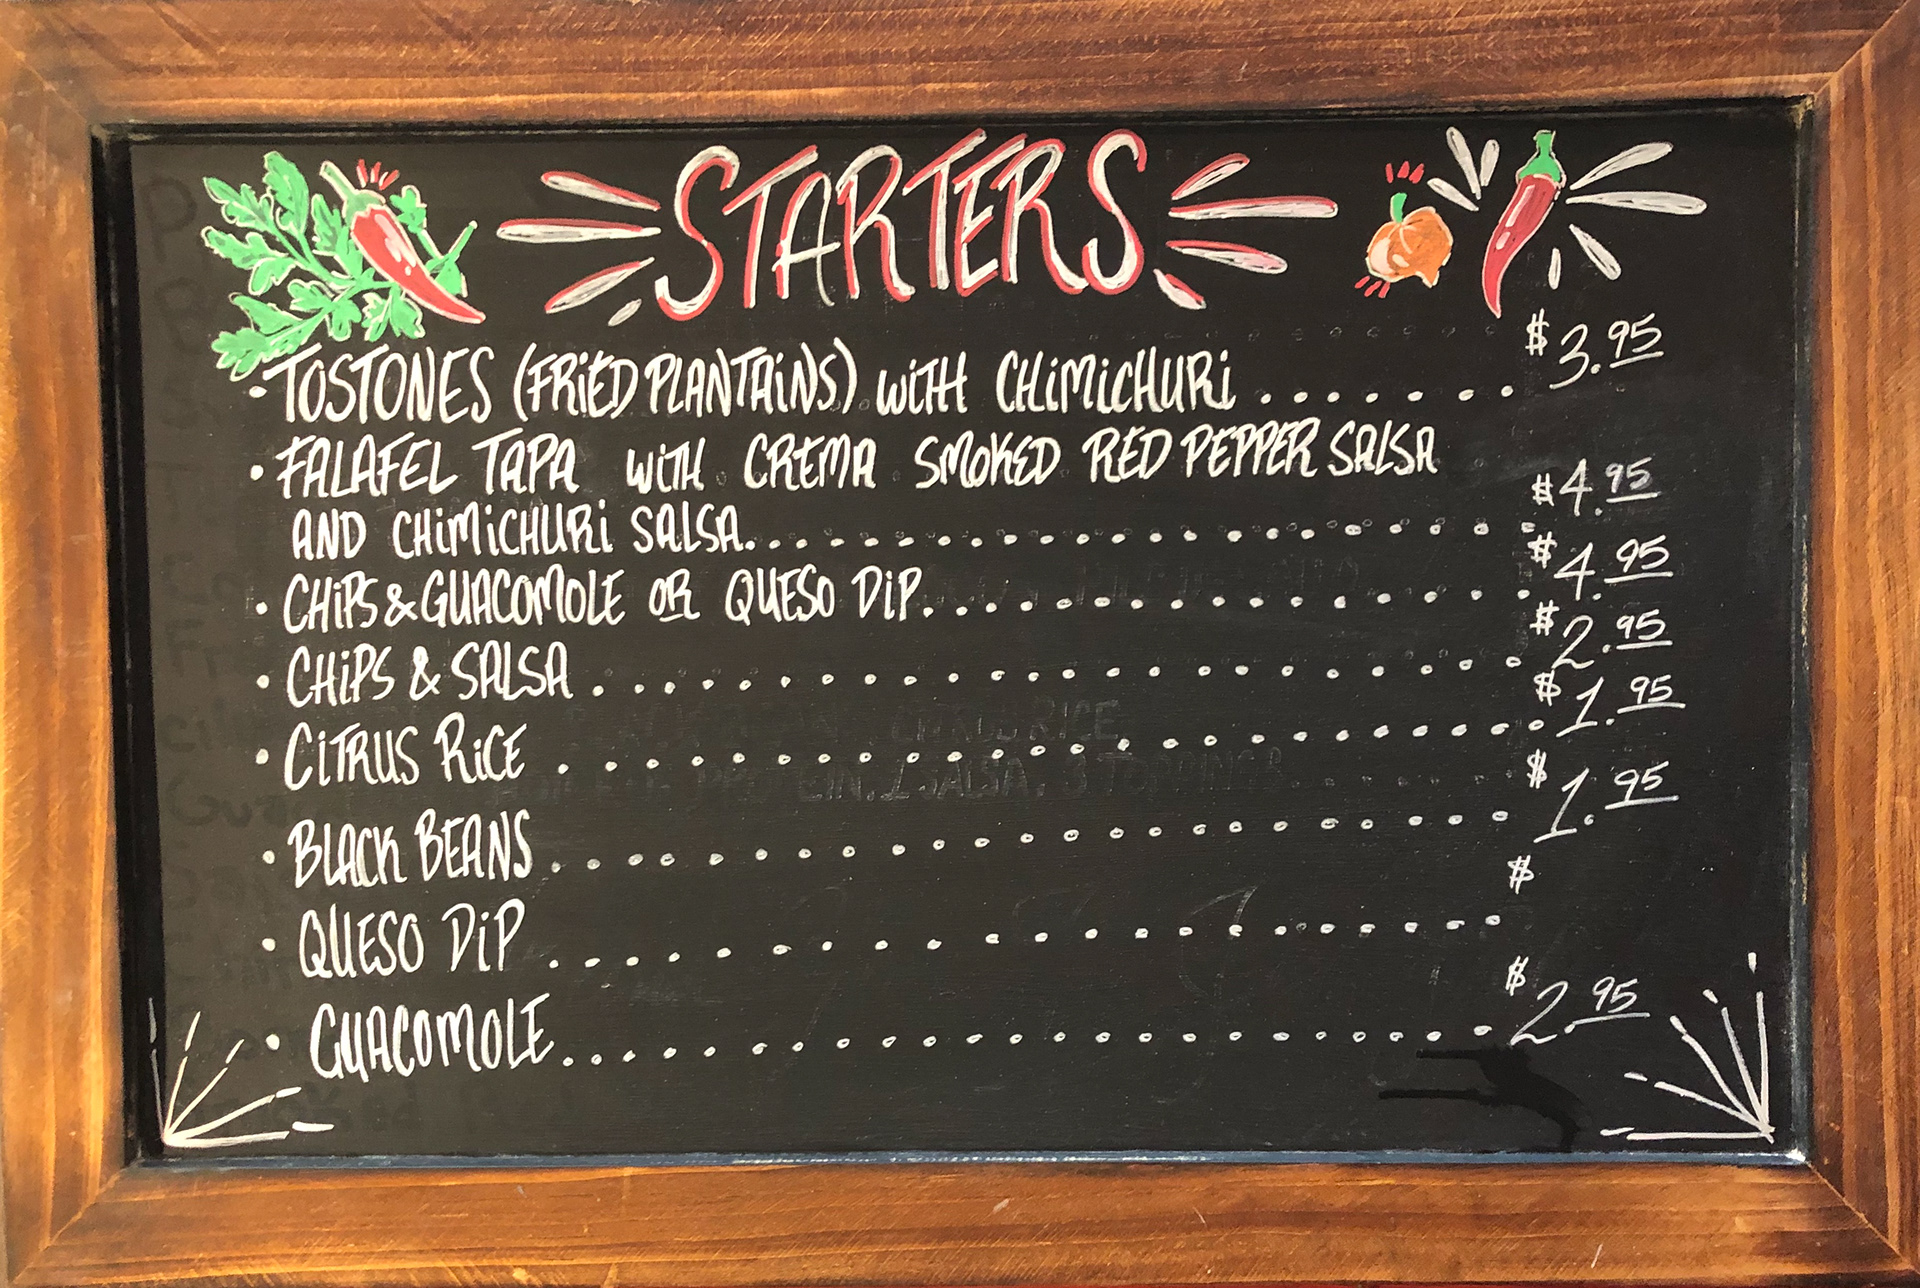 STARTERS
• TOSTONES (FRiED PLANTAiNS) WiTH CHiMiCHURi ....... $3.95
• FALAFEL TAPA WiTH CREMA SMOKED RED PEPPER SALSA
AND CHiMiCHURi SALSA..................... $4.95
• CHiPS & GUACOMOLE OR QUESO DiP................ $4.95
• CHiPS & SALSA ........................ $2.95
• CiTRUS RiCE ........................ $1.95
• BLACK BEANS ..................... $1.95
• QUESO DiP .................... $
• GUACOMOLE..................... $2.95